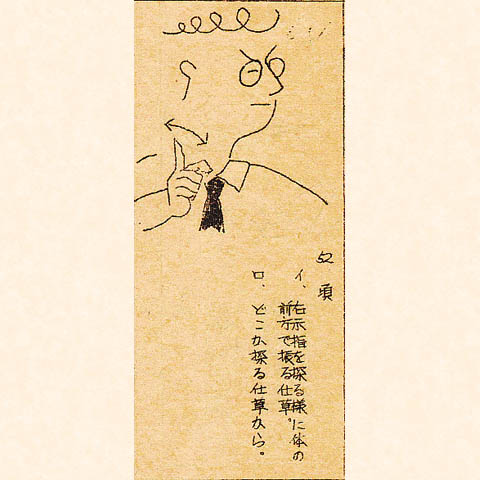 52 頃
イ、右示指を探る様に体の
前方で振る仕草。
ロ、どこか探る仕草から。